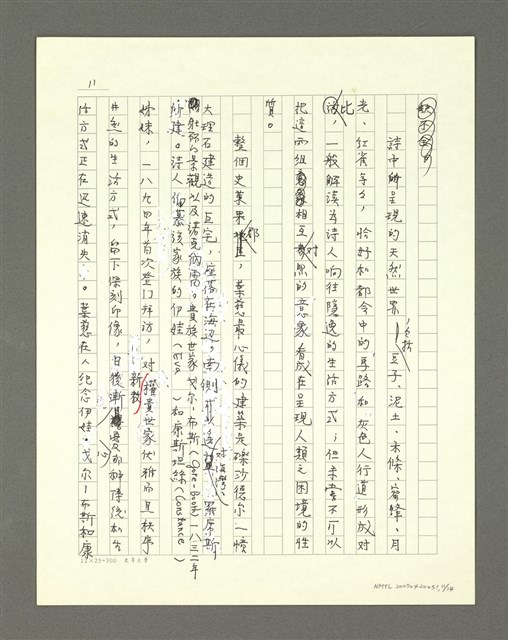 11
詩中所呈現的天然世界──包括豆子、泥土、木條、蜜蜂、月
光、紅雀等等，恰好和都會中的車路和灰色人行道形成對
比，一般解讀為詩人嚮往隱逸的生活方式；但未嘗不可以
把這兩組相互對照的意象看成在呈現人類之困境的性
質。
整個史萊果郡，葉慈最心儀的建築是礫沙德爾一幢
大理石建造的巨宅，座落在海邊，南側可以遠
景觀以及諾克納雷。貴族世家戈爾－布斯（Gore-Booth）一八三二年
所建。詩人仰慕該家族的伊娃（Eva）和康斯坦絲（Constance）
姊妹，一八九四年首次登門拜訪，對新教權貴世家優雅而且秩序
井然的生活方式，留下深刻印象，日後漸漸憂那種傳統和生
活方式正在迅速消失。葉慈在紀念伊娃．戈爾－布斯和康
12×25=300
NMTL 20070420051, 11/14